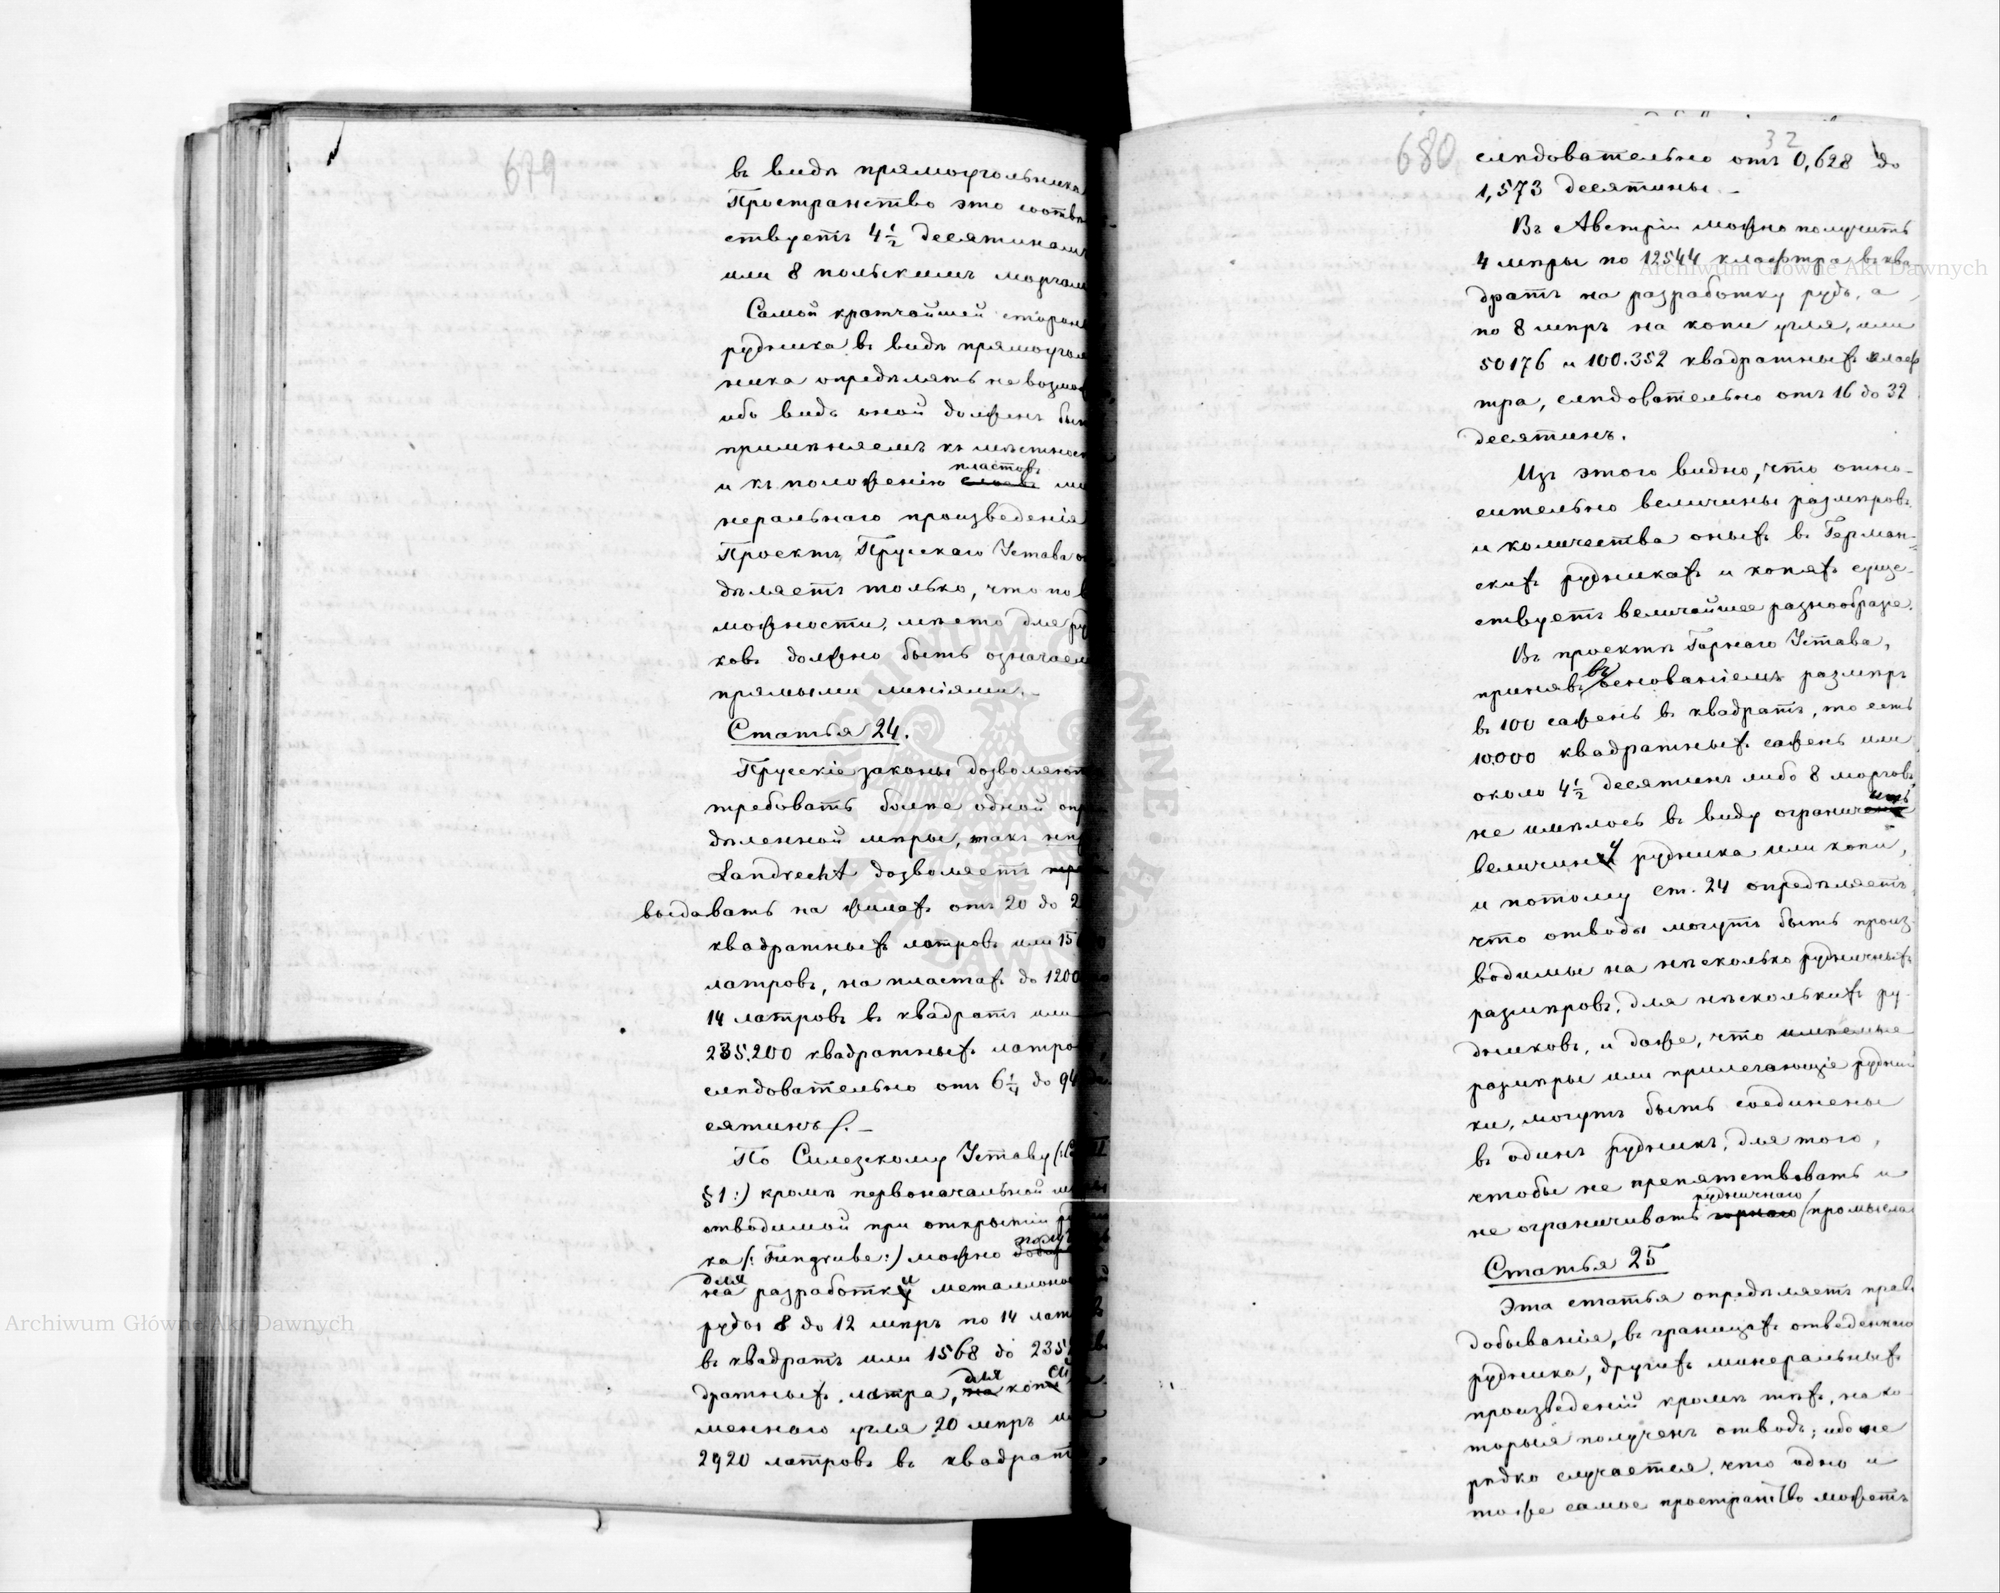 679
въ видѣ прямоугольника
Пространство это соотвѣт
ствуетъ 4½ десятинамъ
или 8 польскимъ моргам
Самой кратчайшей стороны
рудника въ видѣ прямоугол
ника опредѣлять не возмож
ибо видъ оной долженъ быт
примѣняемъ къ мѣстност
и къ положенію пластовъ слоевъ ми
неральнаго произведенія
Проектъ Прусскаго Устава о
дѣляетъ только, что по в
можности, мѣсто для руд
ковъ должно быть означаем
прямыми линіями. –
Статья 24.
Прусскіе законы дозволяютъ
требовать болѣе одной опр
дѣленной мѣры, такъ нпр
Landrecht дозволяетъ
выдавать на жилахъ отъ 20 до 2
квадратныхъ латровъ или 15
латровъ, на пластахъ до 1200
14 латровъ въ квадратѣ или
235.200 квадратныхъ латро
слѣдовательно отъ 6¼ до 94 де
сятинъ. –
По Силезскому Уставу (:
§ 1:) кромѣ первоначальной мѣры
отводимой при открытіи р
ка (: Fungrube :) можно
для на разработки металлонос
руды 8 до 12 мѣръ по 14 лат
въ квадратѣ или 1568 до 2352 кв
дратныхъ латра, для на коп
меннаго угля 20 мѣръ и
2920 латровъ въ квадратѣ,
680
32
слѣдовательно отъ 0,628 до
1,573 десятины. –
Въ Австріи можно получить
4 мѣры по 12544 клафтра въ ква
дратѣ на разработку рудъ, а
по 8 мѣръ на копи угля, или
50176 и 100.352 квадратныхъ клаф
тра, слѣдовательно отъ 16 до 32
десятинъ.
Изъ этого видно, что отно-
сительно величины размѣровъ
и количества оныхъ въ Герман-
скихъ рудникахъ и копяхъ суще-
ствуетъ величайшее разнообразіе.
Въ проектѣ Горнаго Устава,
принявъ въ основаніемъ размѣръ
въ 100 саженъ въ квадратѣ, то есть
10,000 квадратныхъ саженъ или
около 4½ десятинъ либо 8 морговъ
не имѣлось въ виду ограничить
величину рудника или копи,
и потому ст. 24 опредѣляетъ
что отводы могутъ быть произ
водимы на нѣсколько рудничныхъ
размѣровъ, для нѣсколькихъ ру-
дниковъ, и даже, что имѣемые
размѣры или прилегающіе рудни
ки, могутъ быть соединены
въ одинъ рудникъ, для того,
чтобы не препятствовать и
не ограничивать рудничнаго горнаго промысла
Статья 25
Эта статья опредѣляетъ право
добыванія, въ границахъ отведеннаго
рудника, другихъ минеральныхъ
произведеній кромѣ тѣхъ, на ко-
торыя полученъ отводъ; ибо не
рѣдко случается, что одно и
тоже самое пространство можетъ
Archiwum Główne Akt Dawnych
Archiwum Główne Akt Dawnych